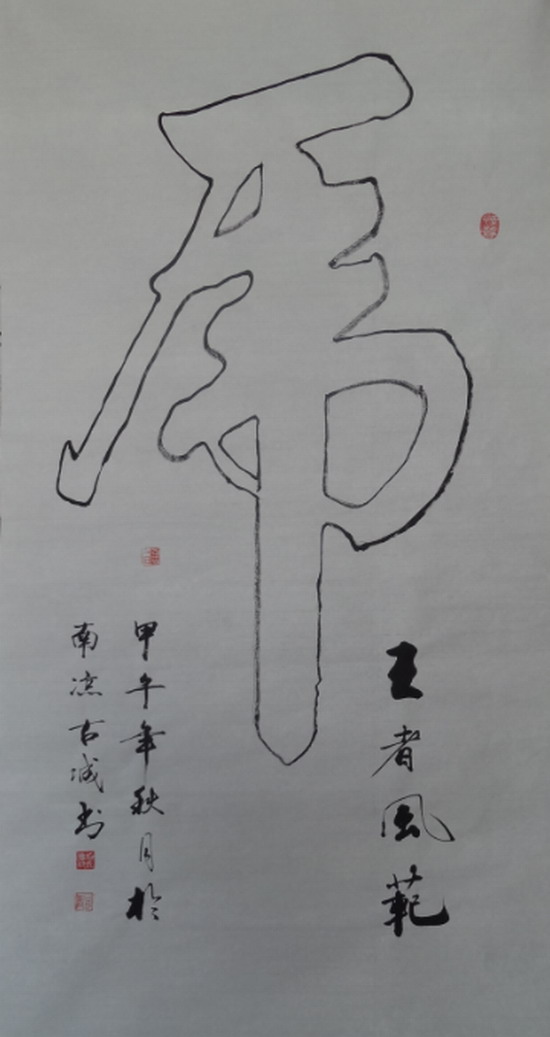 虎
王者风範
甲午年秋月於
南凉古城书